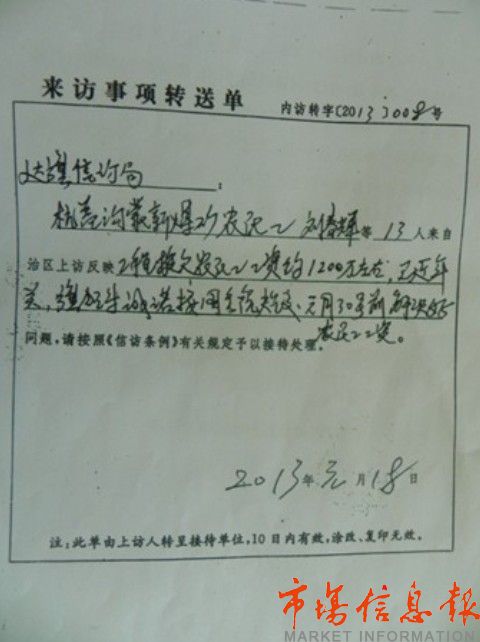 来访事项转送单
内访转字〔2013〕008号
达旗信访局:
农民工刘 等13人来自
治区上访反映工程拖欠农民工工资约1200万左右,已近年
关,旗 元月30号前解决好
农民工工资。
问题,请按照《信访条例》有关规定予以接待处理。
2013年元月18日
注:此单由上访人转呈接待单位,10日内有效,涂改、复印无效。
市场信息报
MARKET INFORMATION